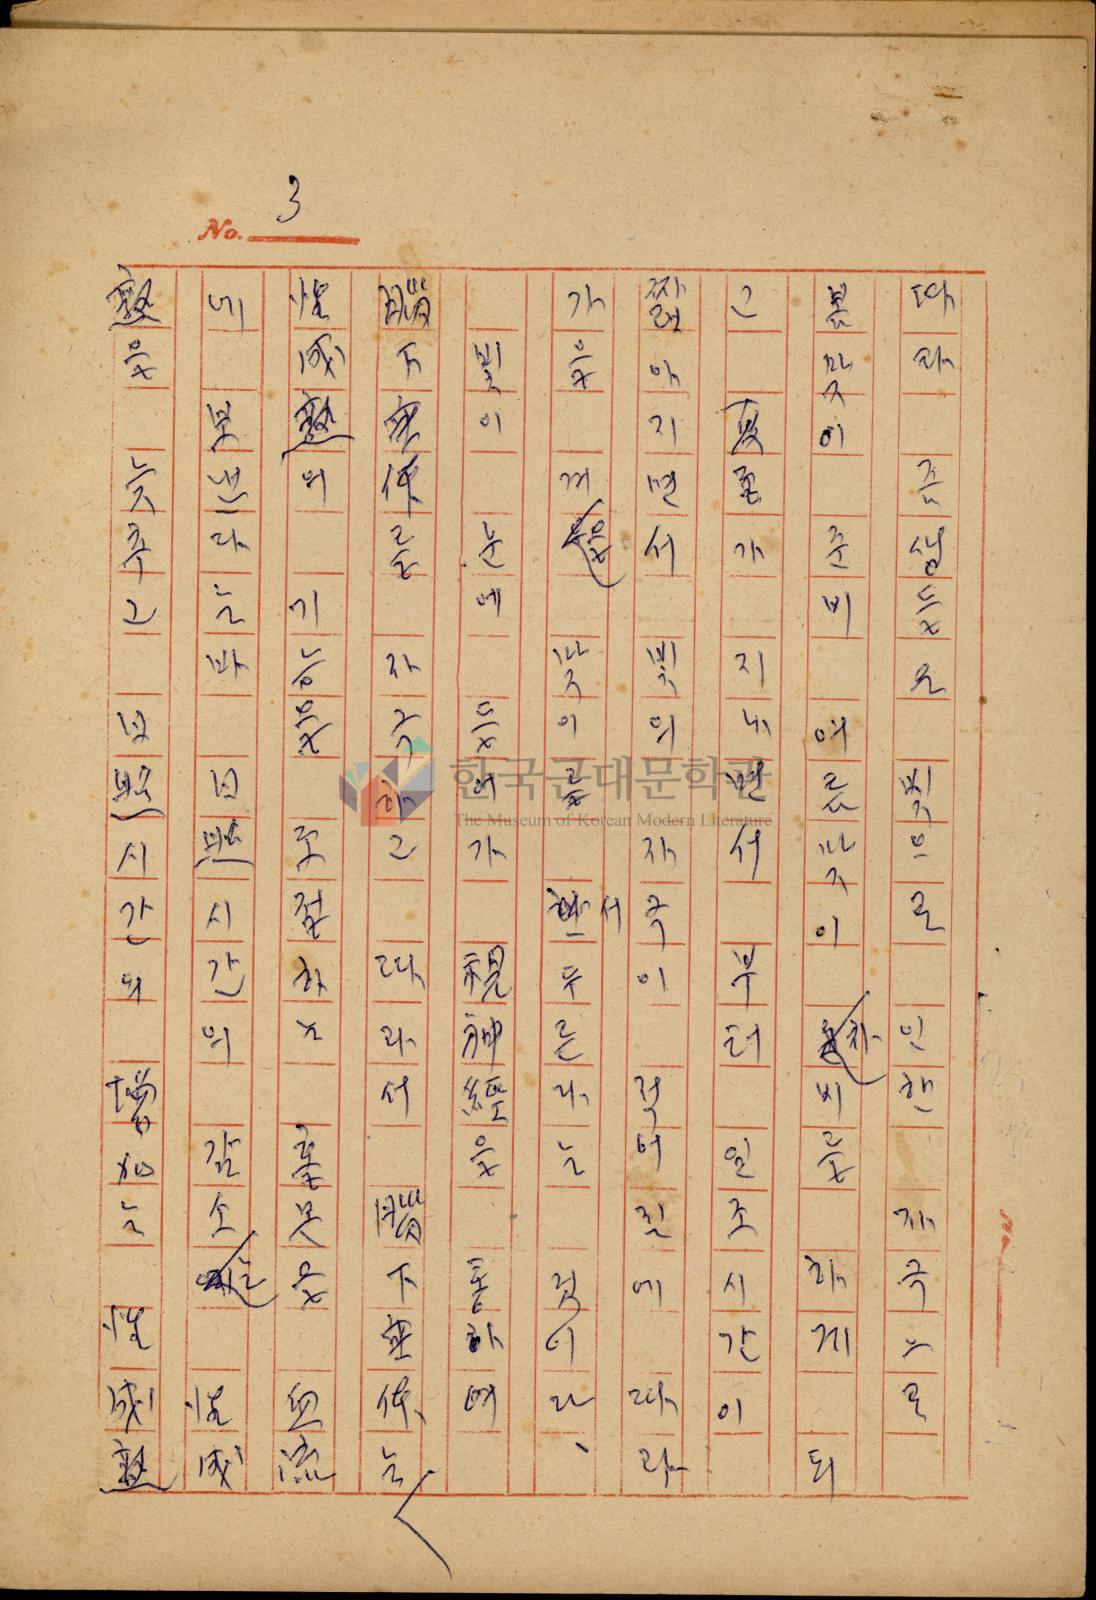 No. 3
따라 즘생들은 빛으로 인한 자극으로
봄맞이 준비 여름맞이 차비를 하게 되
고 夏至가 지나면서 부터 일조시간이
짧아지면서 빛의 자극이 적어짐에 따라
가을 겨울 맞이를 것이다、
빛이 눈에 들어가 視神經을 통하여
腦下垂体를 자극하고 따라서 腦下垂体는
性成熟의 기능을 조절하는 血流
에 보낸다는바 日照시간의 감소는 性成
熟을 늦추고 日照시간의 增加는 性成熟
한국근대문학관
The Museum of Korean Modern Literature